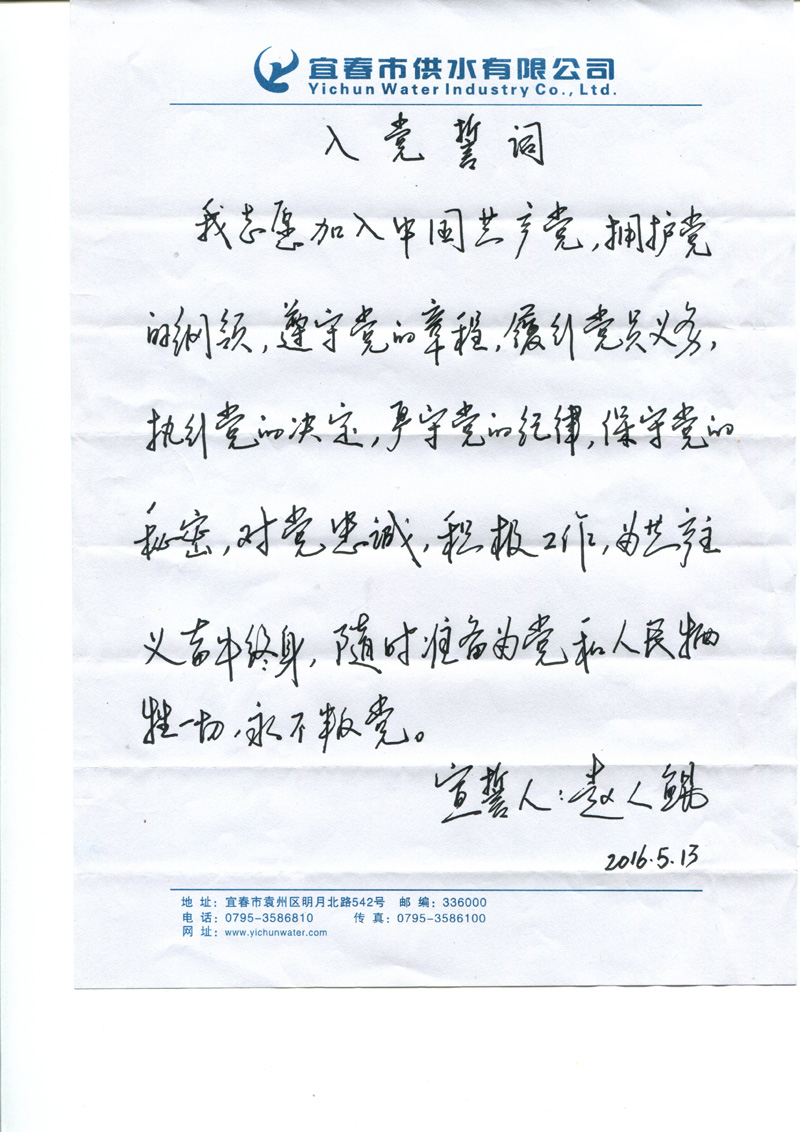 宜春市供水有限公司
Yichun Water Industry Co., Ltd.
入党誓词
我志愿加入中国共产党，拥护党
的纲领，遵守党的章程，履行党员义务，
执行党的决定，严守党的纪律，保守党的
秘密，对党忠诚，积极工作，为共产主
义奋斗终身，随时准备为党和人民牺
牲一切，永不叛党。
宣誓人：赵人
2016.5.13
地 址：宜春市袁州区明月北路542号 邮 编：336000
电 话：0795-3586810 传 真：0795-3586100
网 址：www.yichunwater.com